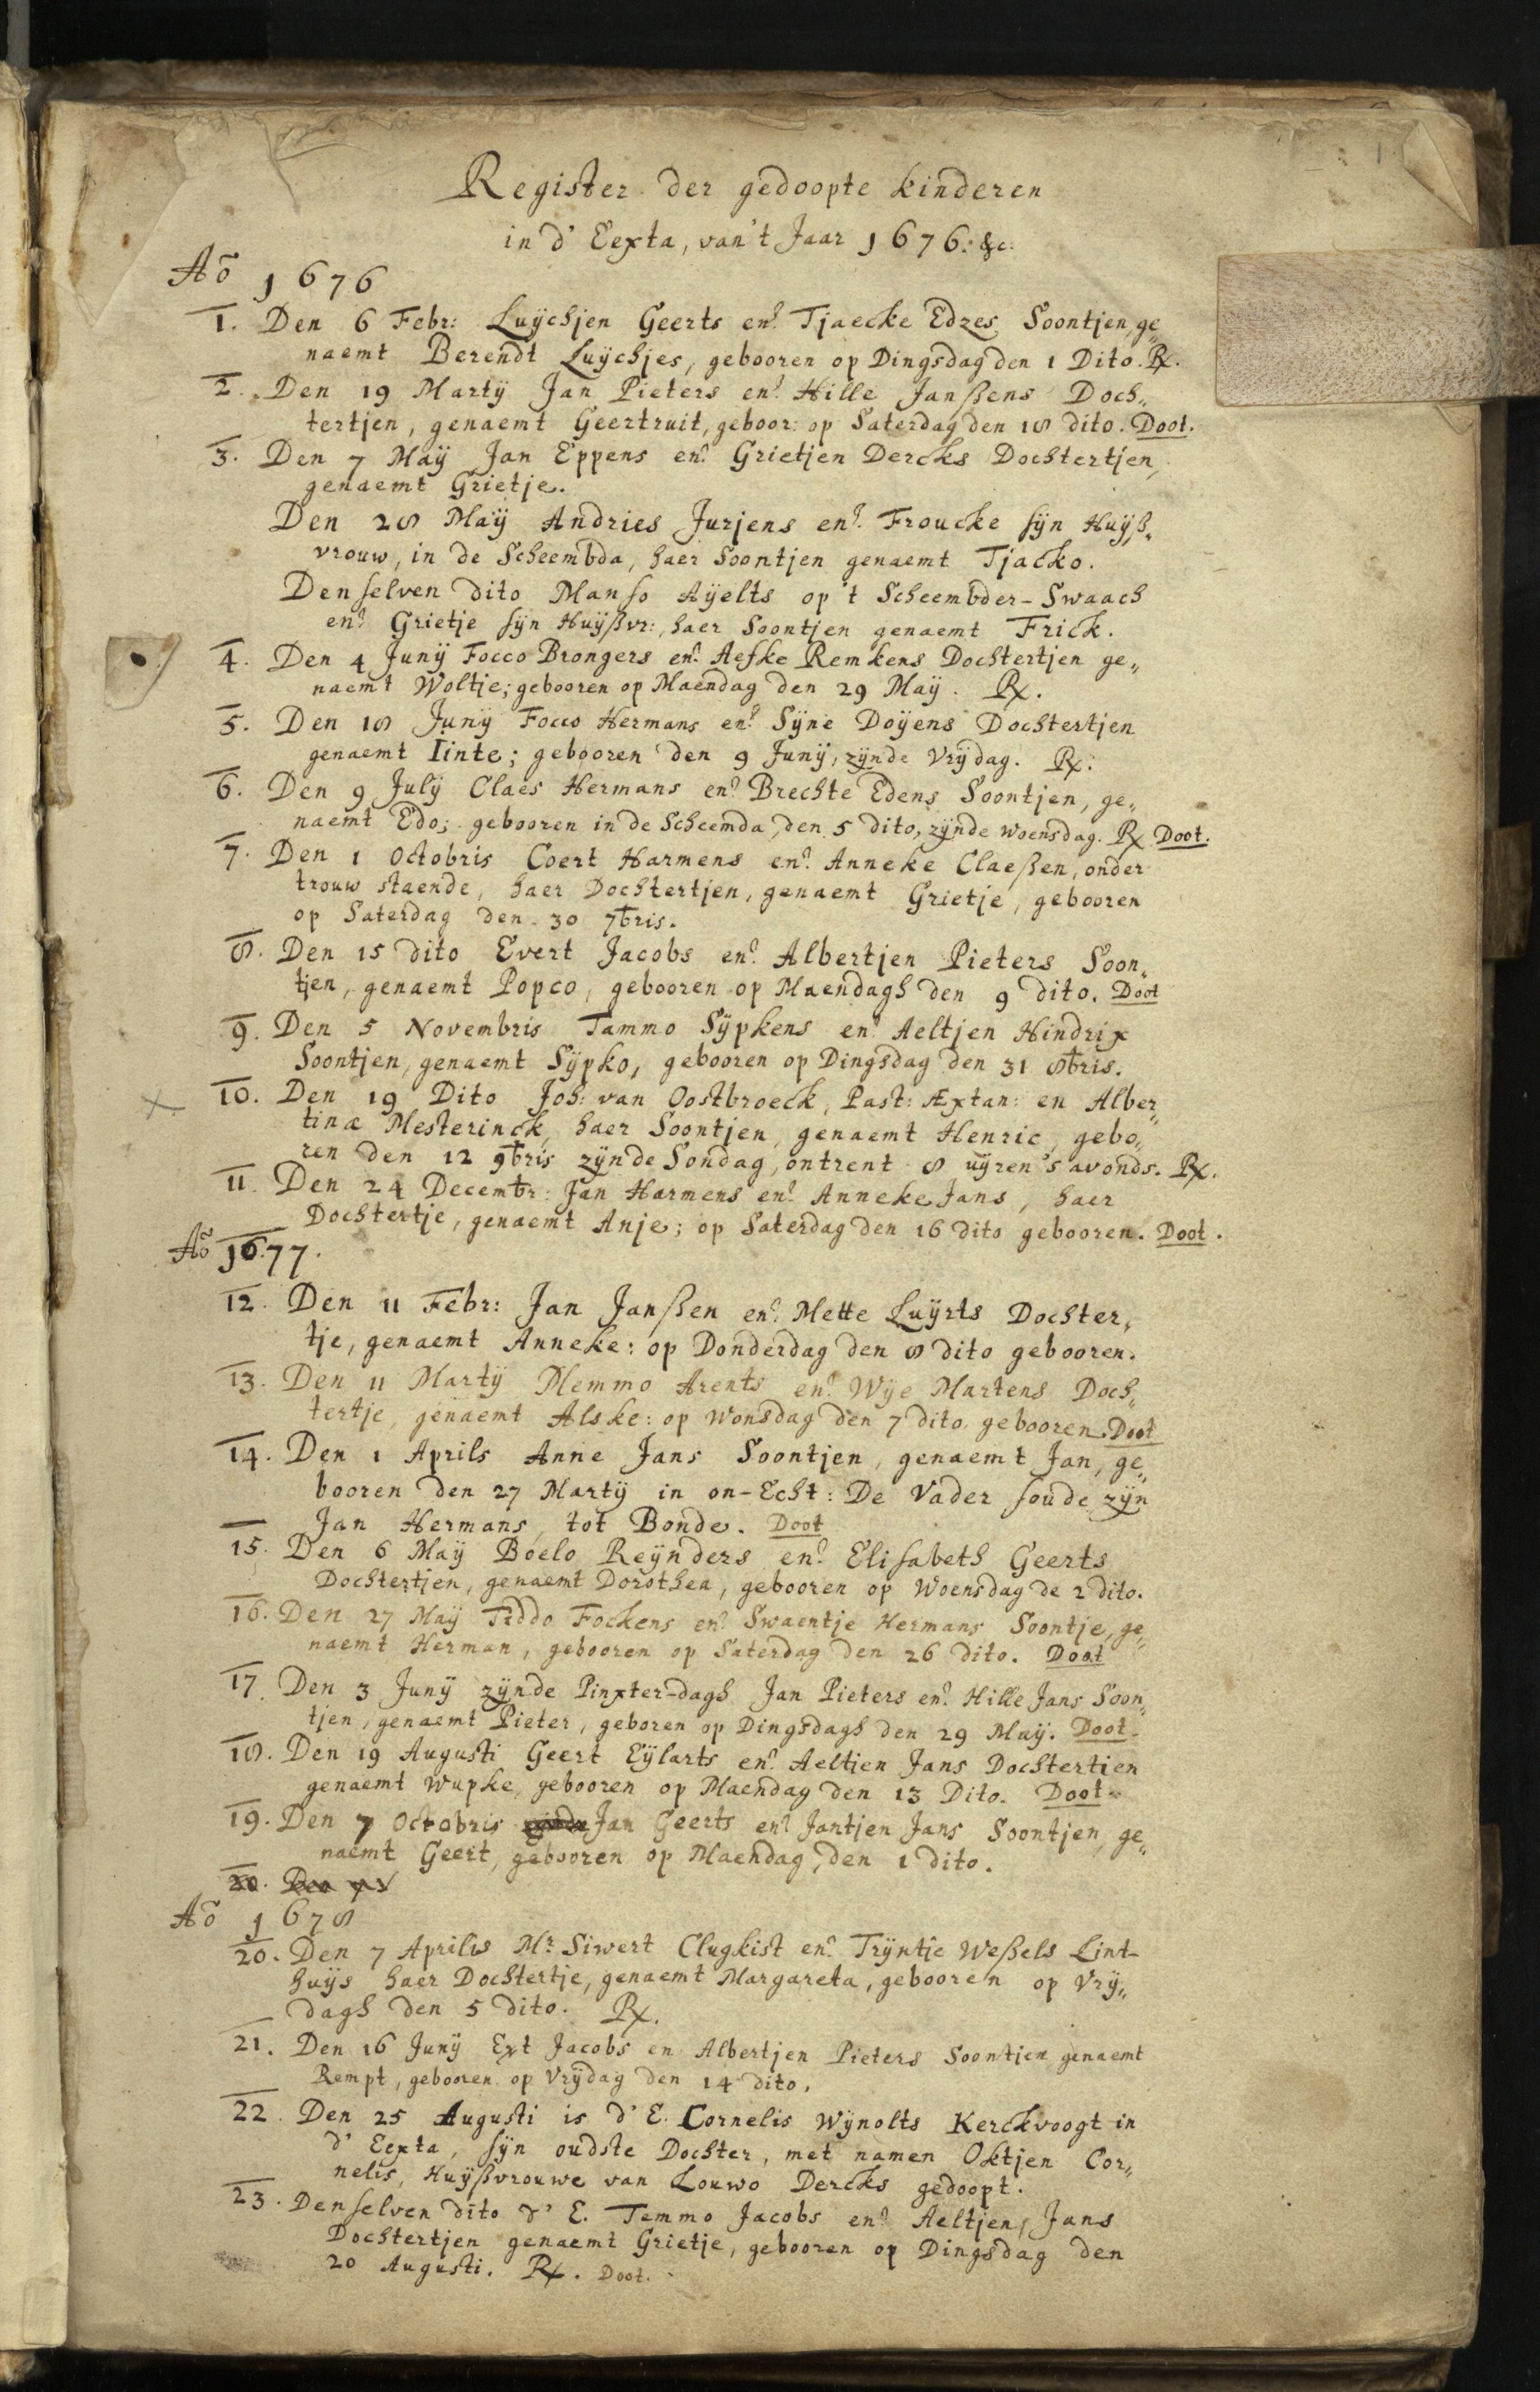 1
Register der gedoopte kinderen
in d' Eexta, van't Jaar 1676. &c.
Aõ 1676
1. Den 6 Febr: Luÿchjen Geerts en Tjaecke Edzes Soontjen, ge„
naemt Berendt Luÿchjes, gebooren op Dingsdag den 1 Dito. Rx.
2. Den 19 Martÿ Jan Pieters en Hille Janßens Doch„
tertjen, genaemt Geertruit, geboor: op Saterdag den 18 dito. Doot.
3. Den 7 Maÿ Jan Eppens en Grietjen Dercks Dochtertjen,
genaemt Grietje.
Den 28 Maÿ Andries Jurjens en Froucke sÿn Huÿß„
vrouw, in de Scheembda, haer Soontjen genaemt Tjacko.
Denselven dito Manso Aÿelts op 't Scheembder-Swaach
en Grietje sÿn Huÿßvr:, haer Soontjen genaemt Frick.
4. Den 4 Junÿ Focco Brongers en Aefke Remkens Dochtertjen ge„
naemt Woltje; gebooren op Maendag den 29 Maÿ. Rx.
5. Den 18 Junÿ Focco Hermans en Sÿne Doÿens Dochtertjen
genaemt Iinte; gebooren den 9 Junÿ, zÿnde Vrÿdag. Rx.
6. Den 9 Julÿ Claes Hermans en Brechte Edens Soontjen, ge„
naemt Edo; gebooren in de Scheemda, den 5 dito, zÿnde woensdag. Rx Doot.
7. Den 1 Octobris Coert Harmens en Anneke Claeßen, onder
trouw staende, haer Dochtertjen, genaemt Grietje, gebooren
op Saterdag den 30 7bris.
8. Den 15 dito Evert Jacobs en Albertjen Pieters Soon„
tjen, genaemt Popco, gebooren op Maendagh den 9 dito. Doot
9. Den 5 Novembris Tammo Sÿpkens en Aeltjen Hindrix
Soontjen, genaemt Sÿpko, gebooren op Dingsdag den 31 8bris.
10. Den 19 Dito Joh: van Oostbroeck, Past: Æxtan: en Alber„
tinæ Mesterinck, haer Soontjen, genaemt Henric, gebo„
ren den 12 9bris zÿnde Sondag, ontrent 8 uÿren 's avonds. Rx.
11. Den 24 Decembr: Jan Harmens en Anneke Jans, haer
Dochtertje, genaemt Anje; op Saterdag den 16 dito gebooren. Doot.
Aõ 1677.
12. Den 11 Febr: Jan Janßen en Mette Luÿrts Dochter„
tje, genaemt Anneke: op Donderdag den 8 dito gebooren.
13. Den 11 Martÿ Memmo Arents en Wÿe Martens Doch„
tertje, genaemt Alske: op wonsdag den 7 dito gebooren. Doot
14. Den 1 Aprils Anne Jans Soontjen, genaemt Jan, ge„
booren den 27 Martÿ in on-Echt: De Vader soude zÿn
Jan Hermans, tot Bonde. Doot
15. Den 6 Maÿ Boelo Reÿnders en Elisabeth Geerts
Dochtertjen, genaemt Dorothea, gebooren op Woensdag de 2 dito.
16. Den 27 Maÿ Tiddo Fockens en Swaentje Hermans Soontje, ge„
naemt Herman, gebooren op Saterdag den 26 dito. Doot
17. Den 3 Junÿ zÿnde Pinxter-dagh Jan Pieters en Hille Jans Soon„
tjen, genaemt Pieter, geboren op Dingsdagh den 29 Maÿ. Doot.
18. Den 19 Augusti Geert Eÿlarts en Aeltien Jans Dochtertien
genaemt Wupke, gebooren op Maendag den 13 Dito. Doot.
19. Den 7 Octobris Jan Geerts en Jantjen Jans Soontjen, ge„
naemt Geert, gebooren op Maendag, den 1 dito.
20. Den
Aõ 1678
20. Den 7 Aprilis Mr. Siwert Clugkist en Trÿntje Weßels Lint-
huÿs haer Dochtertje, genaemt Margareta, gebooren op Vrÿ„
dagh den 5 dito. Rx.
21. Den 16 Junÿ Ext Jacobs en Albertjen Pieters Soontjen genaemt
Rempt, gebooren op Vrÿdag den 14 dito.
22. Den 25 Augusti is d' E. Cornelis Wÿnolts Kerckvoogt in
d' Eexta, sÿn oudste Dochter, met namen Oktjen Cor„
nelis, Huÿßvrouwe van Louwo Dercks gedoopt.
23. Denselven dito d' E. Temmo Jacobs en Aeltjen Jans
Dochtertjen genaemt Grietje, gebooren op Dingsdag den
20 Augusti. Rx. Doot.